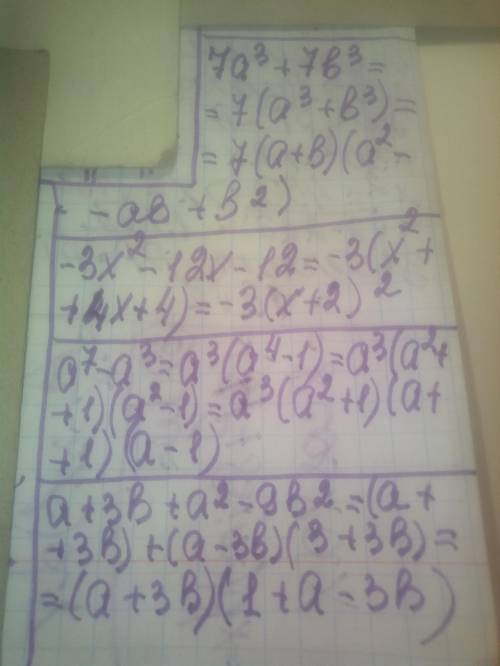 7a³ + 7b³ =
= 7(a³ + b³) =
= 7(a+b)(a² -
- ab + b²)
-3x² - 12x - 12 = -3(x² +
+ 4x + 4) = -3(x+2)²
a⁷ - a³ = a³(a⁴ - 1) = a³(a² +
+ 1)(a² - 1) = a³(a² + 1)(a +
+ 1)(a - 1)
a + 3b + a² - 9b² = (a +
+ 3b) + (a - 3b)(3 + 3b) =
= (a + 3b)(1 + a - 3b)